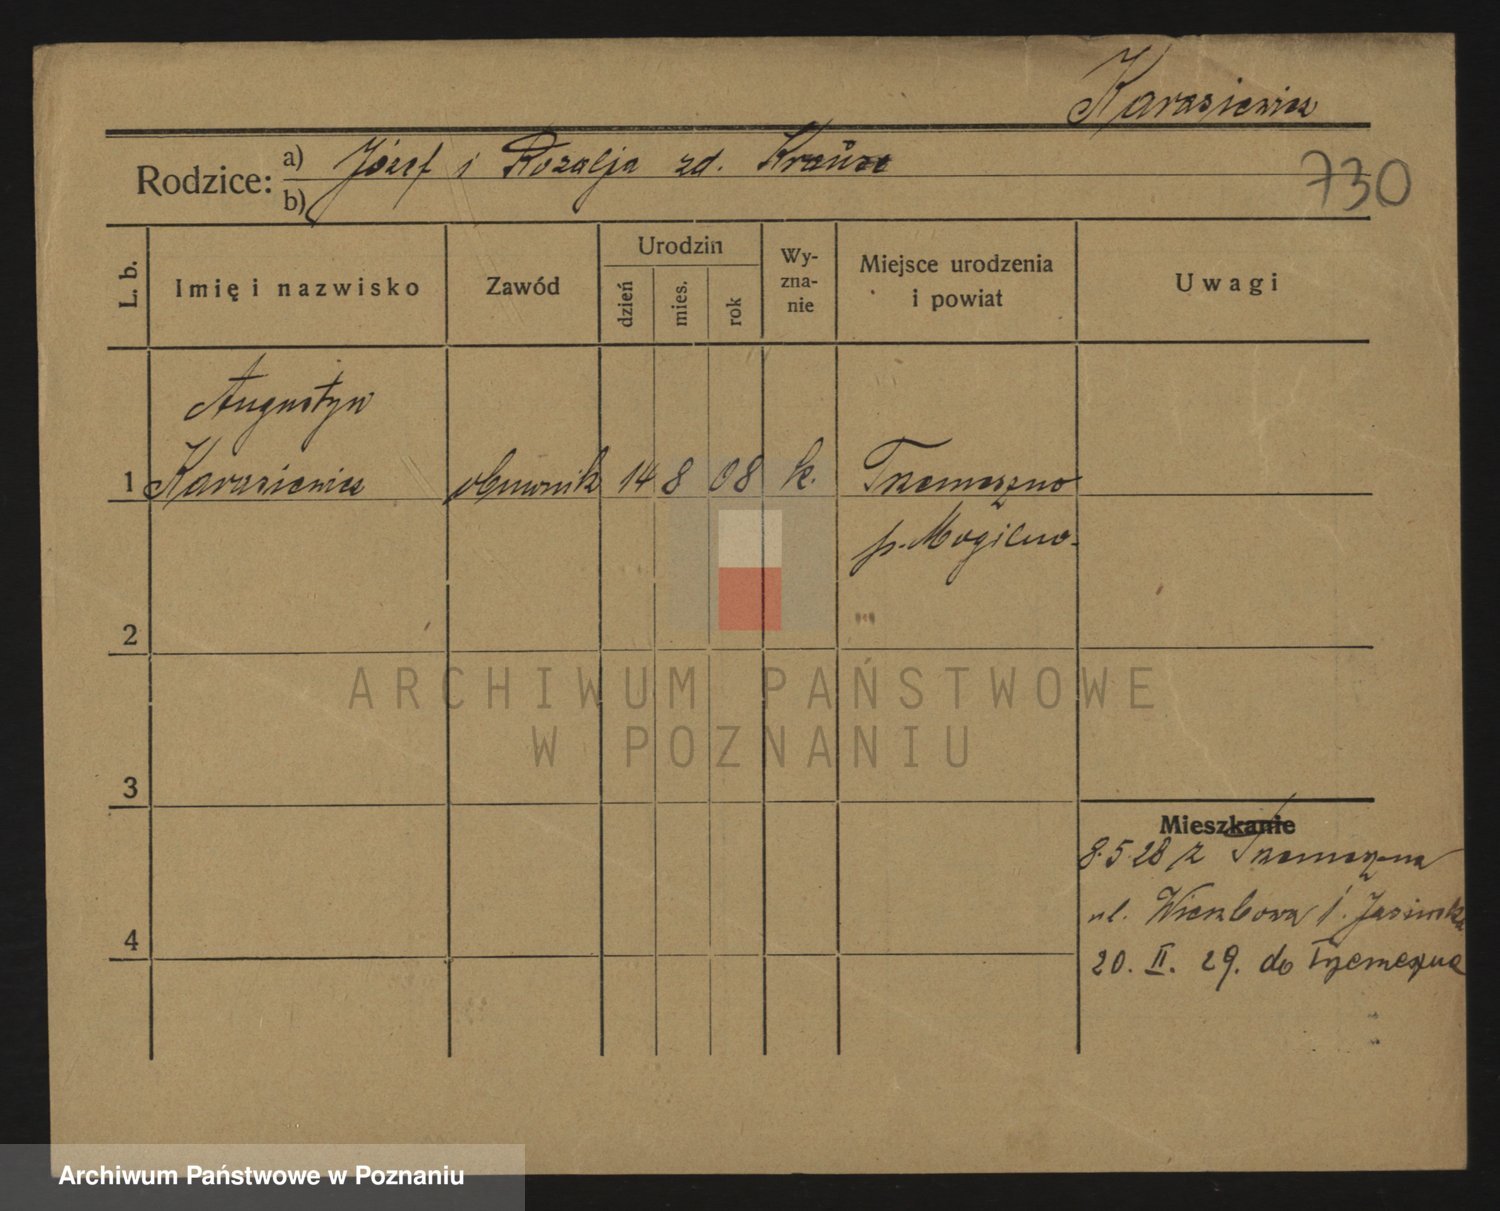 Karasiewicz
Rodzice: a) Józef i Rozalja zd. Krauze
b)
730
L. b.
Imię i nazwisko
Zawód
Urodzin
dzień
mies.
rok
Wy-
zna-
nie
Miejsce urodzenia
i powiat
Uwagi
Augustyn
1 Karasiewicz obuwnik 14 8 08 k. Trzemeszno
p. Mogilno.
2
ARCHIWUM PAŃSTWOWE
W POZNANIU
3
Mieszkanie
8.5.28 z Trzemeszna
ul. Wierzbowa 1.
4
20. II. 29. do Trzemeszna
Archiwum Państwowe w Poznaniu